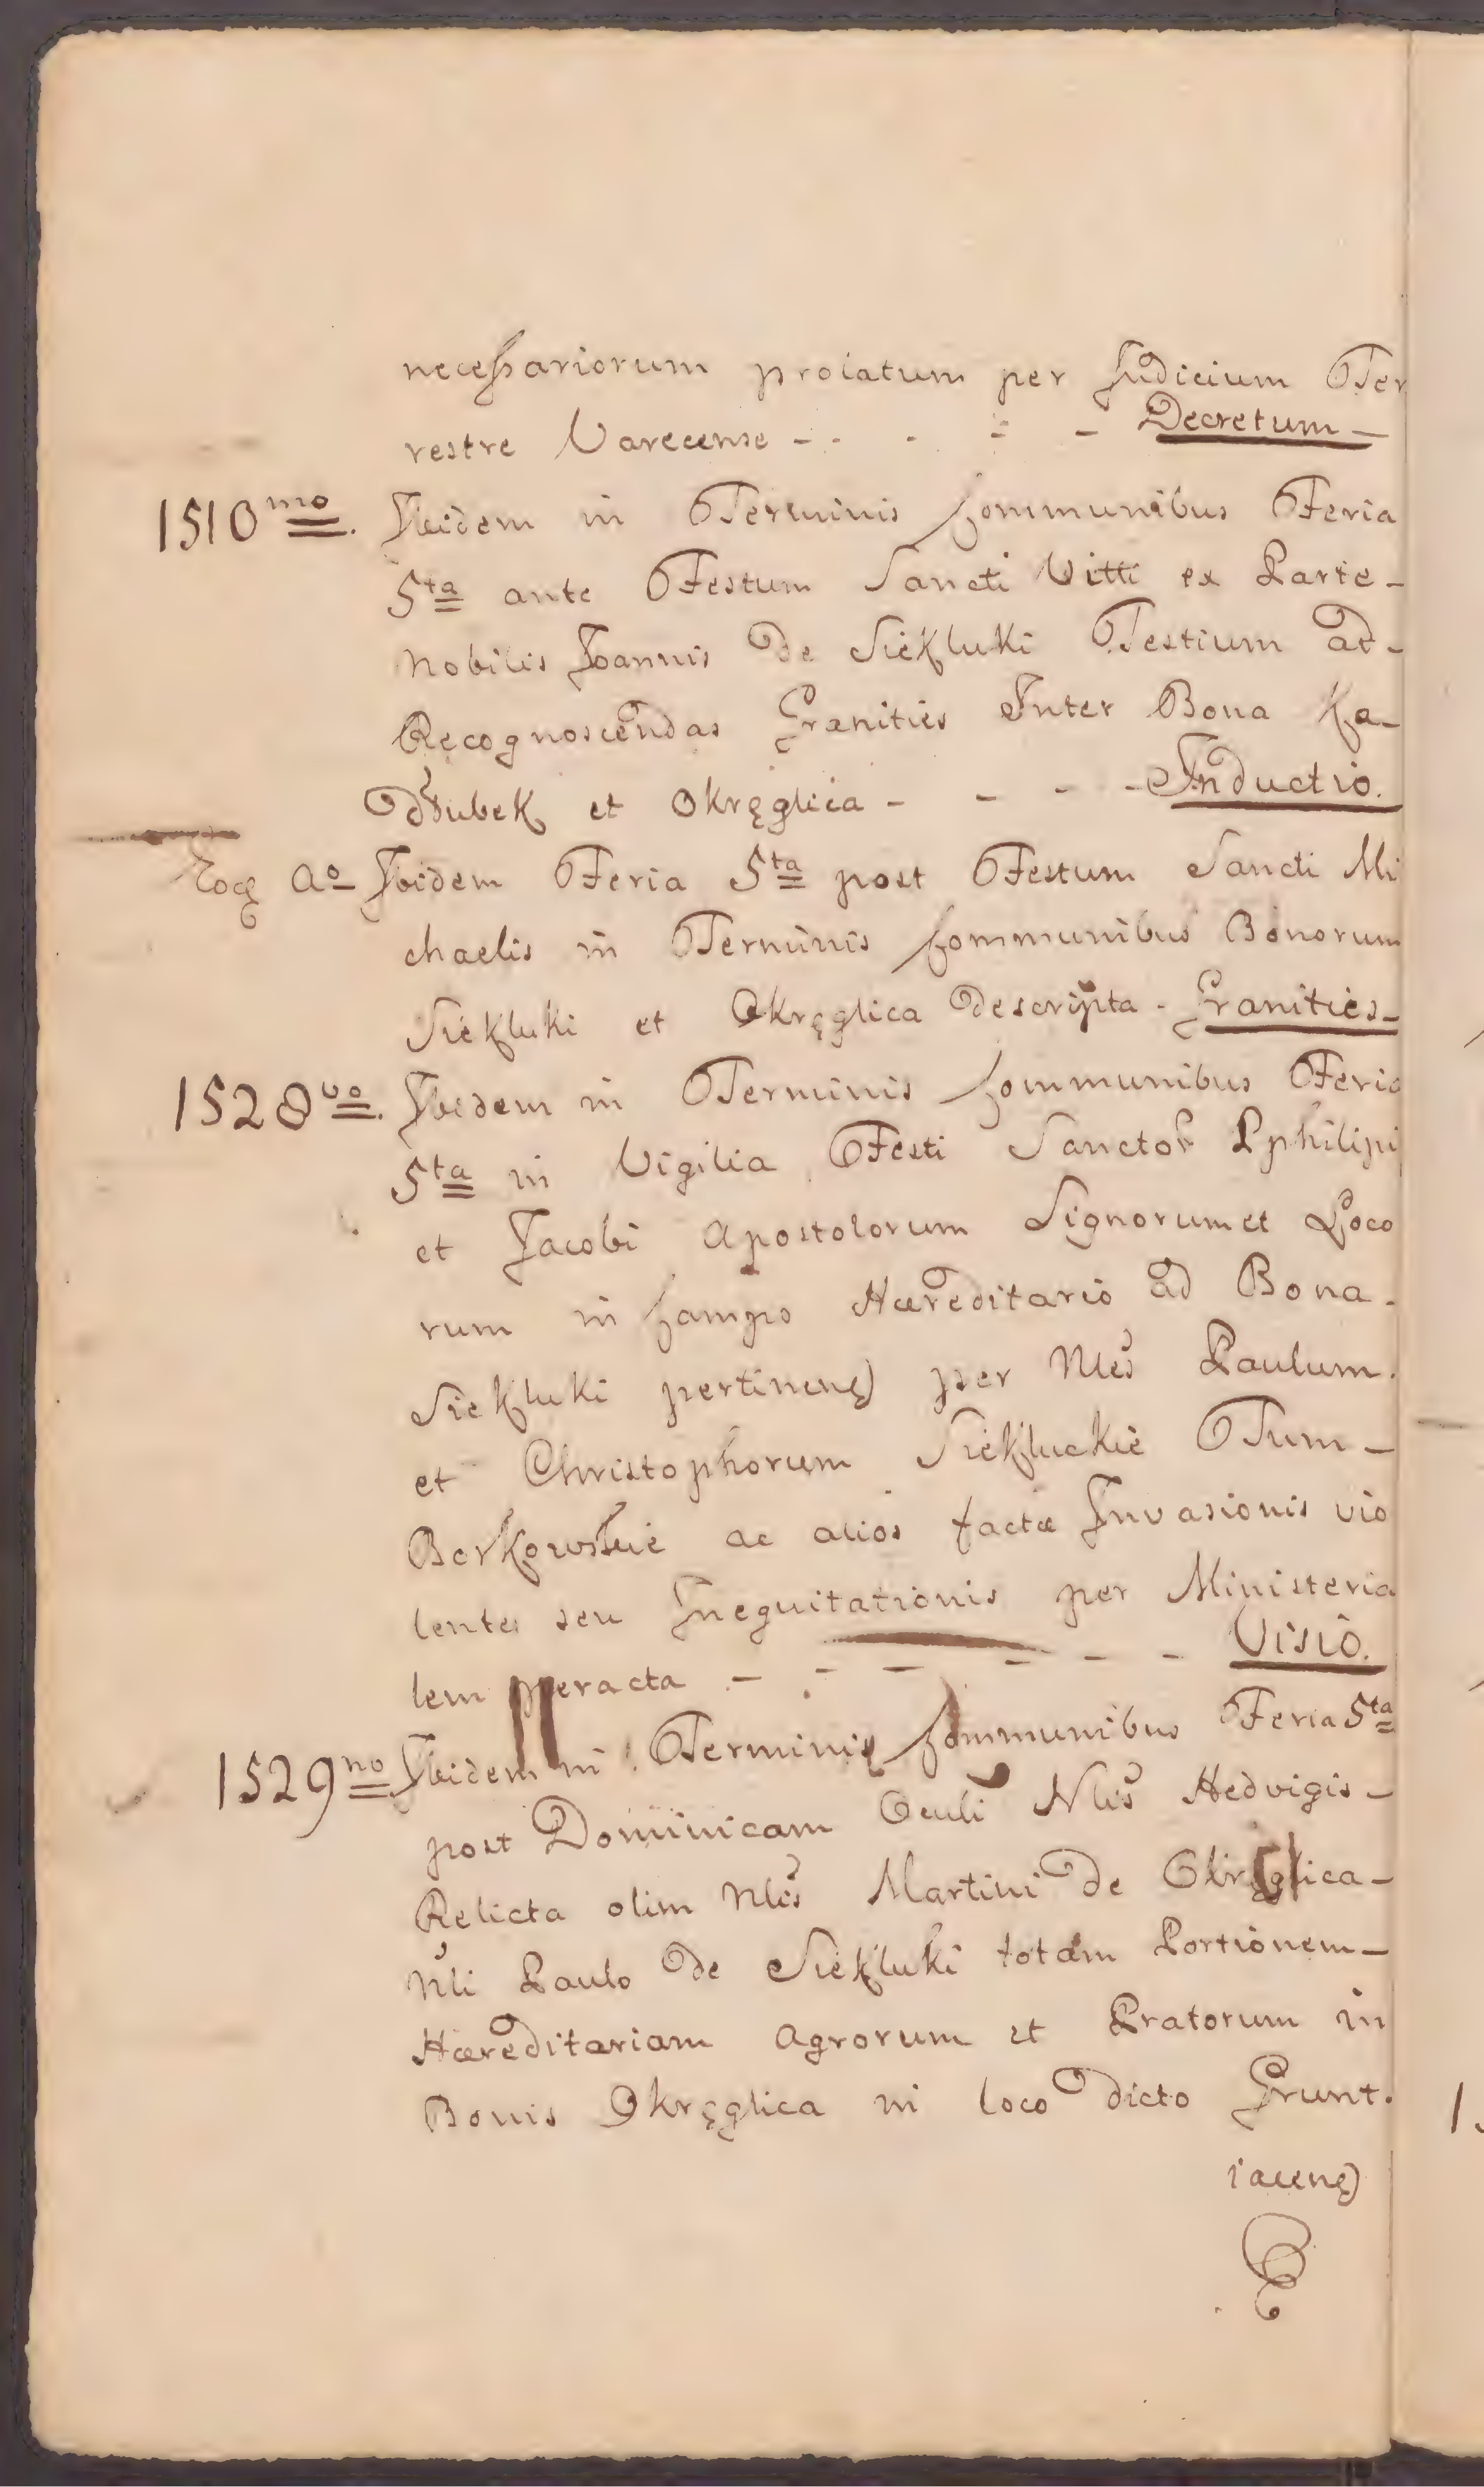 necessariorum prolatum per Judicium Ter
restre Varecense - - - - - Decretum -
1510mo. Ibidem in Terminis Communibus Feria
5ta ante Festum Sancti Vitti ex Parte -
Nobilis Joannis de Siekluki Testium ad -
Recognoscendas Granities Inter Bona Ka-
dłubek et Okręglica - - - - Inductio.
Eoq Ao Ibidem Feria 5ta post Festum Sancti Mi
chaelis in Terminis Communibus Bonorum
Siekluki et Okręglica descripta - Granities -
1528vo. Ibidem in Terminis Communibus Feria
5ta in Vigilia Festi Sanctor Pphilipi
et Jacobi Apostolorum Signorum et Loco
rum in Campo Hæreditario ad Bona -
Siekluki pertinen per Nles Paulum.
et Christophorum Siekluckie Tum -
Borkowskie ac alios factæ Invasionis vio
lentes seu Inequitationis per Ministeria
lem peracta - - - - - - Visio.
1529no Ibidem in Terminis Communibus Feria 5ta
post Dominicam Oculi Nlis Hedvigis -
Relicta olim Nlis Martini de Okręglica -
Nli Paulo de Siekluki totam Portionem -
Hæreditariam Agrorum et Pratorum in
Bonis Okręglica in loco dicto Grunt.
iacen